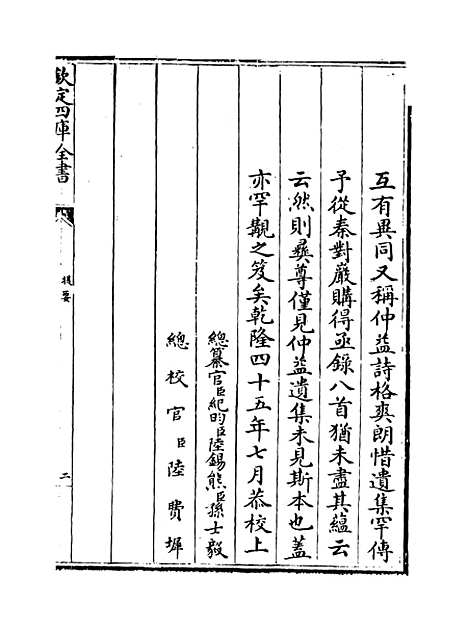 互有異同又稱仲益詩格爽朗惜遺集罕傳
予從秦對巖購得亟錄八首猶未盡其蘊云
云然則彞尊僅見仲益遺集未見斯本也蓋
亦罕覯之笈矣乾隆四十五年七月恭校上
總纂官臣紀昀臣陸錫熊臣孫士毅
總校官臣陸費墀
欽定四庫全書
提要
二